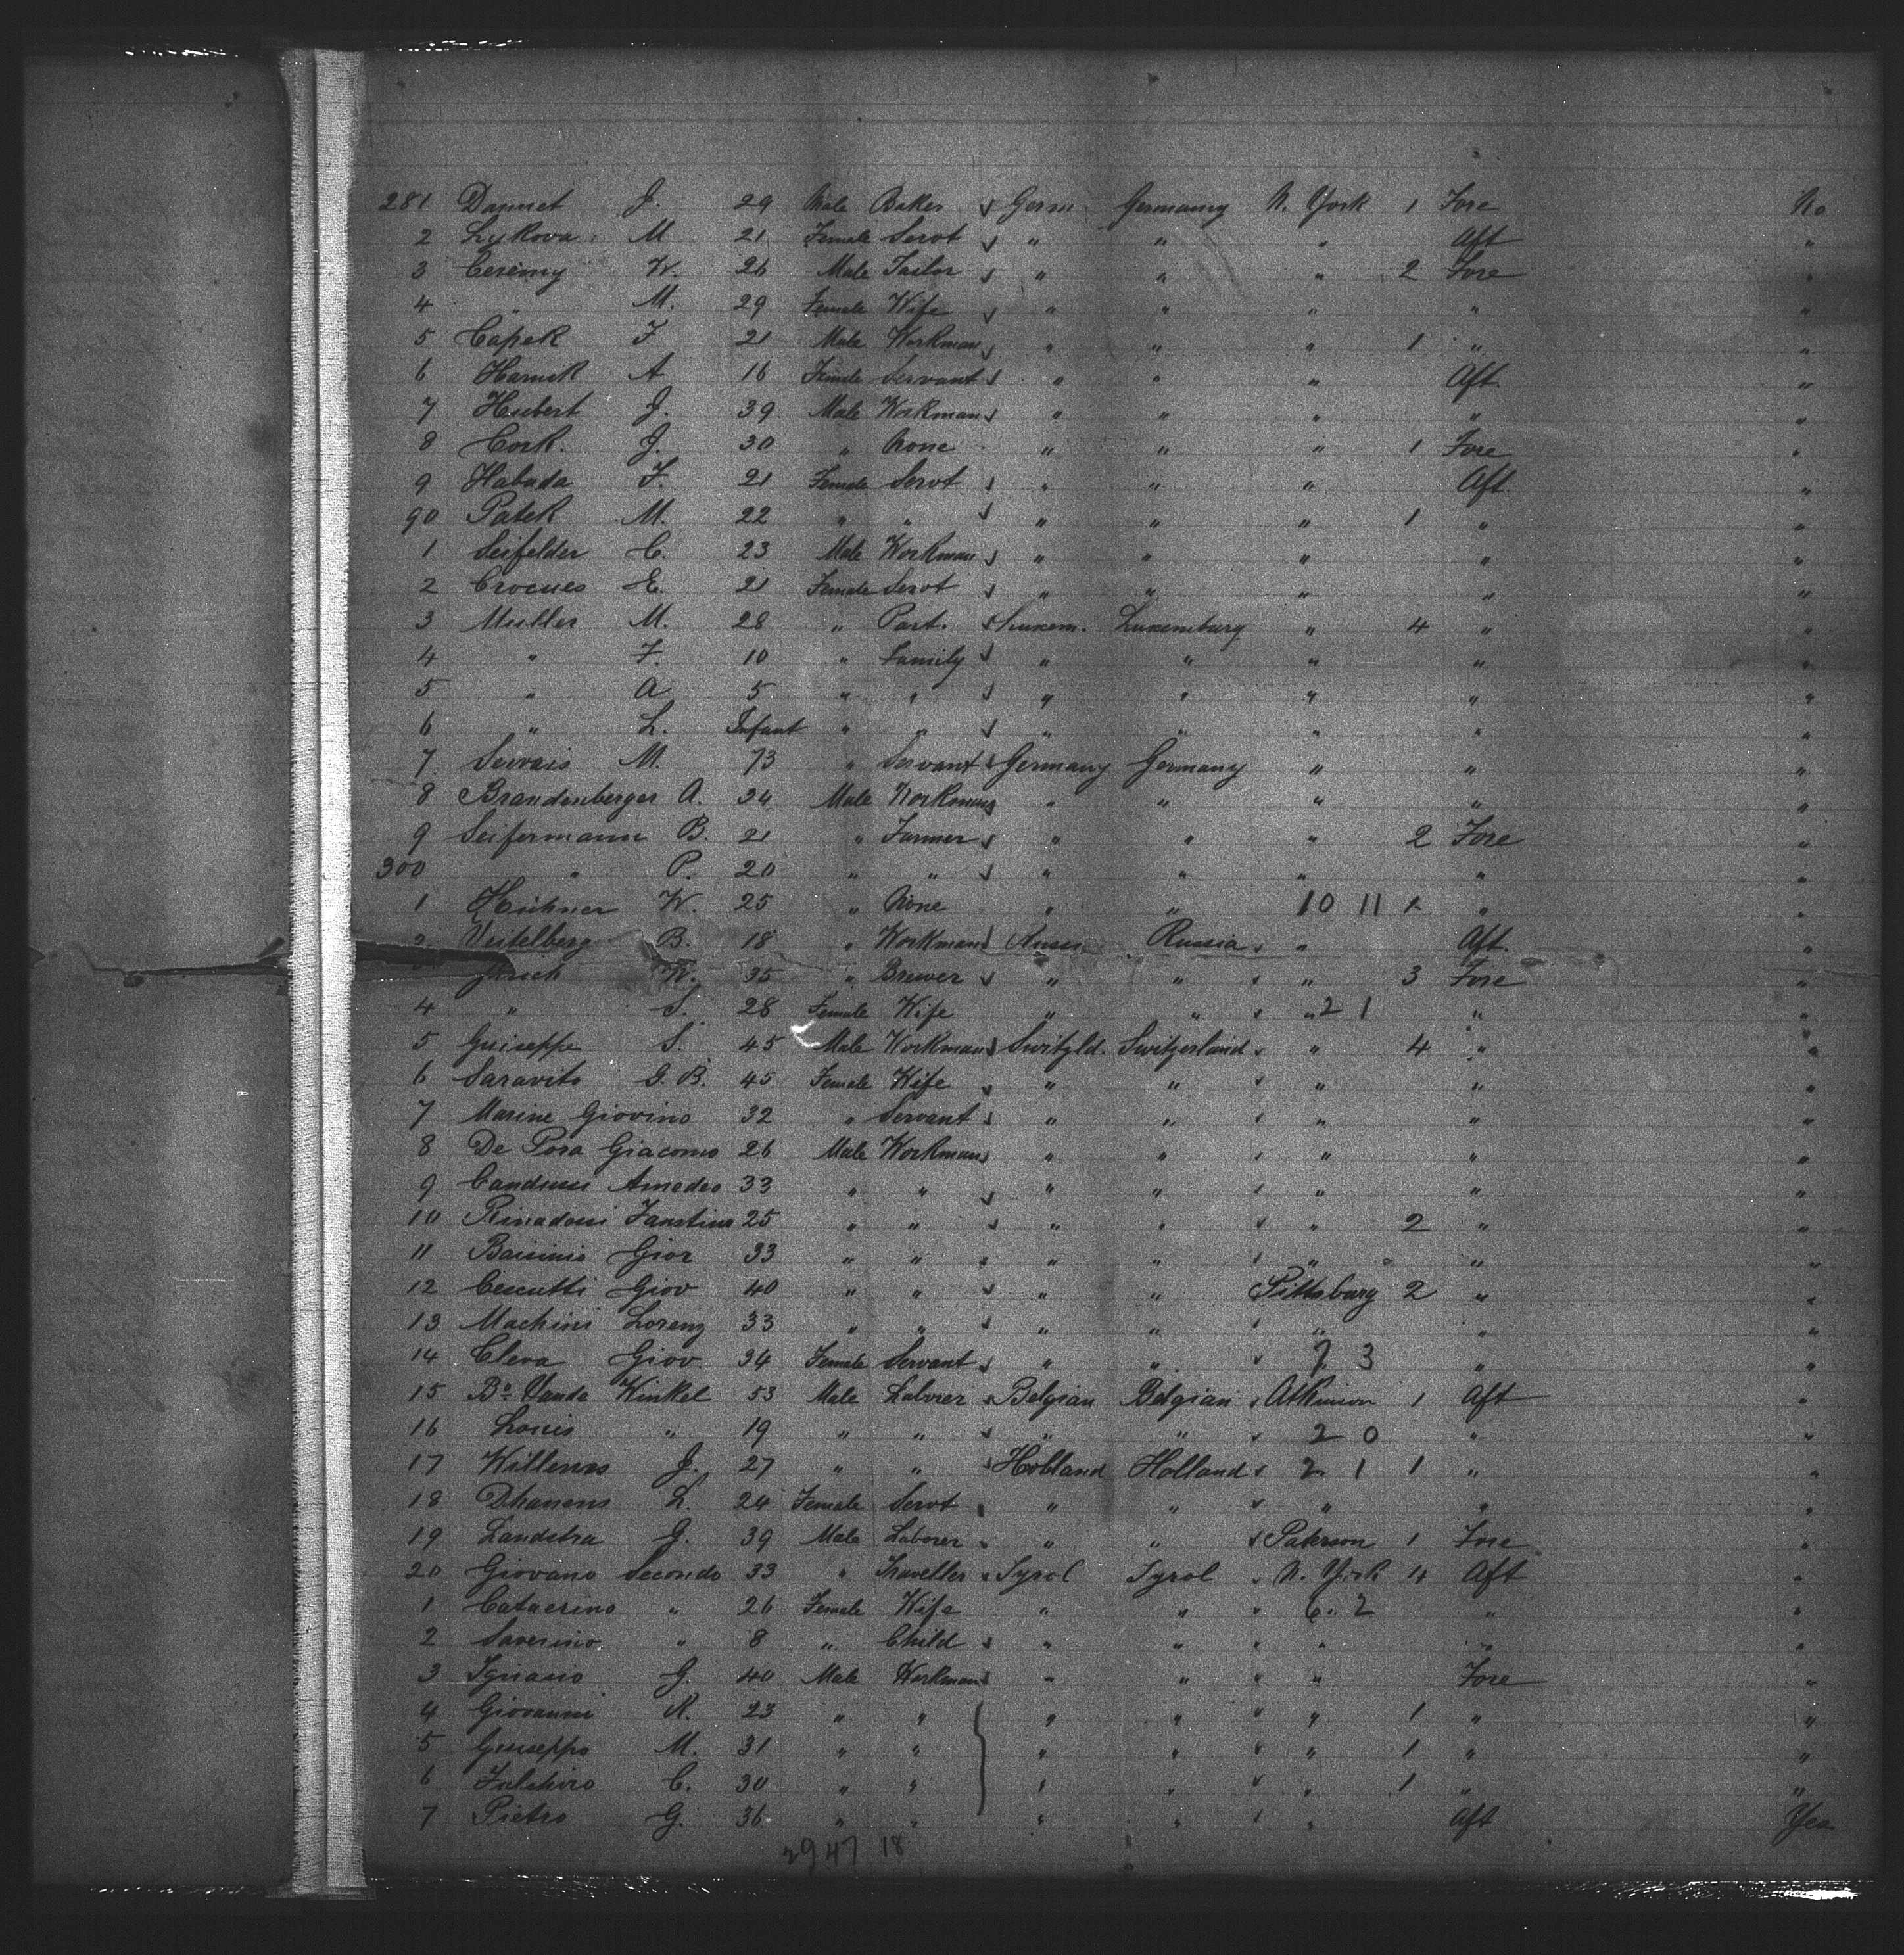 281 Dannet J. 29 Male Baker Germ. Germany N. York 1 Fore No
2 Lykova M 21 Female Servt " " " Aft "
3 Ceremy W. 26 Male Tailor " " " 2 Fore "
4 " M. 29 Female Wife " " " " "
5 Capek F 21 Male Workman " " " 1 " "
6 Hamik A 16 Female Servant " " " Aft "
7 Hubert J. 39 Male Workman " " " " "
8 Cork. J. 30 " None " " " 1 Fore "
9 Habada F. 21 Female Servt " " " Aft "
90 Patek M. 22 " " " " " 1 " "
1 Seifelder C. 23 Male Workman " " " " "
2 Crocues E. 21 Female Servt " " " " "
3 Muller M. 28 " Part. Luxem. Luxemburg " 4 " "
4 " F. 10 " Family " " " " "
5 " A 5 " " " " " " "
6 " L. Infant " " " " " " "
7 Servais M. 73 " Servant Germany Germany " " "
8 Brandenberger A. 34 Male Workman " " " " "
9 Seifermann B. 21 " Farmer " " " 2 Fore "
300 " P. 20 " " " " " " "
1 Huhner W. 25 " None " " 10 11 1 " "
2 Veitelberg B. 18 " Workman Russi Russia " Aft. "
W. 35 " Brewer " " " 3 Fore "
4 " S. 28 Female Wife " " " 2 1 " "
5 Guiseppe S. 45 Male Workman Switzld. Switzerland " 4 " "
6 Saravito G. B. 45 Female Wife " " " " "
7 Marine Giovino 32 " Servant " " " " "
8 De Posa Giacomo 26 Male Workman " " " " "
9 Candussi Amedeo 33 " " " " " " "
10 Rinadoni Faustino 25 " " " " " 2 " "
11 Baisinio Gior 33 " " " " " " "
12 Cescutti Giov 40 " " " " Pittsburg 2 " "
13 Machini Lorenz 33 " " " " " " "
14 Cleva Giov. 34 Female Servant " " 7 3 " "
15 Bo. Vanda Winkel 53 Male Laborer Belgian Belgian Atkinson 1 Aft "
16 Louis " 19 " " " " 2 0 " "
17 Willems J. 27 " " Holland Holland 2 1 1 " "
18 Dhanens L. 24 Female Servt " " " " "
19 Landstra J. 39 Male Laborer " " Paterson 1 Fore "
20 Giovano Secondo 33 " Traveller Tyrol Tyrol N. York 4 Aft "
1 Cataerino " 26 Female Wife " " 6 2 " "
2 Saverino " 8 " Child " " " " "
3 Ignasio G. 40 Male Workman " " " Fore "
4 Giovanni R. 23 " " " " " 1 " "
5 Guiseppo M. 31 " " " " " 1 " "
6 C. 30 " " " " " 1 " "
7 Pietro G. 36 " " " " " Aft Yes
29 47 18